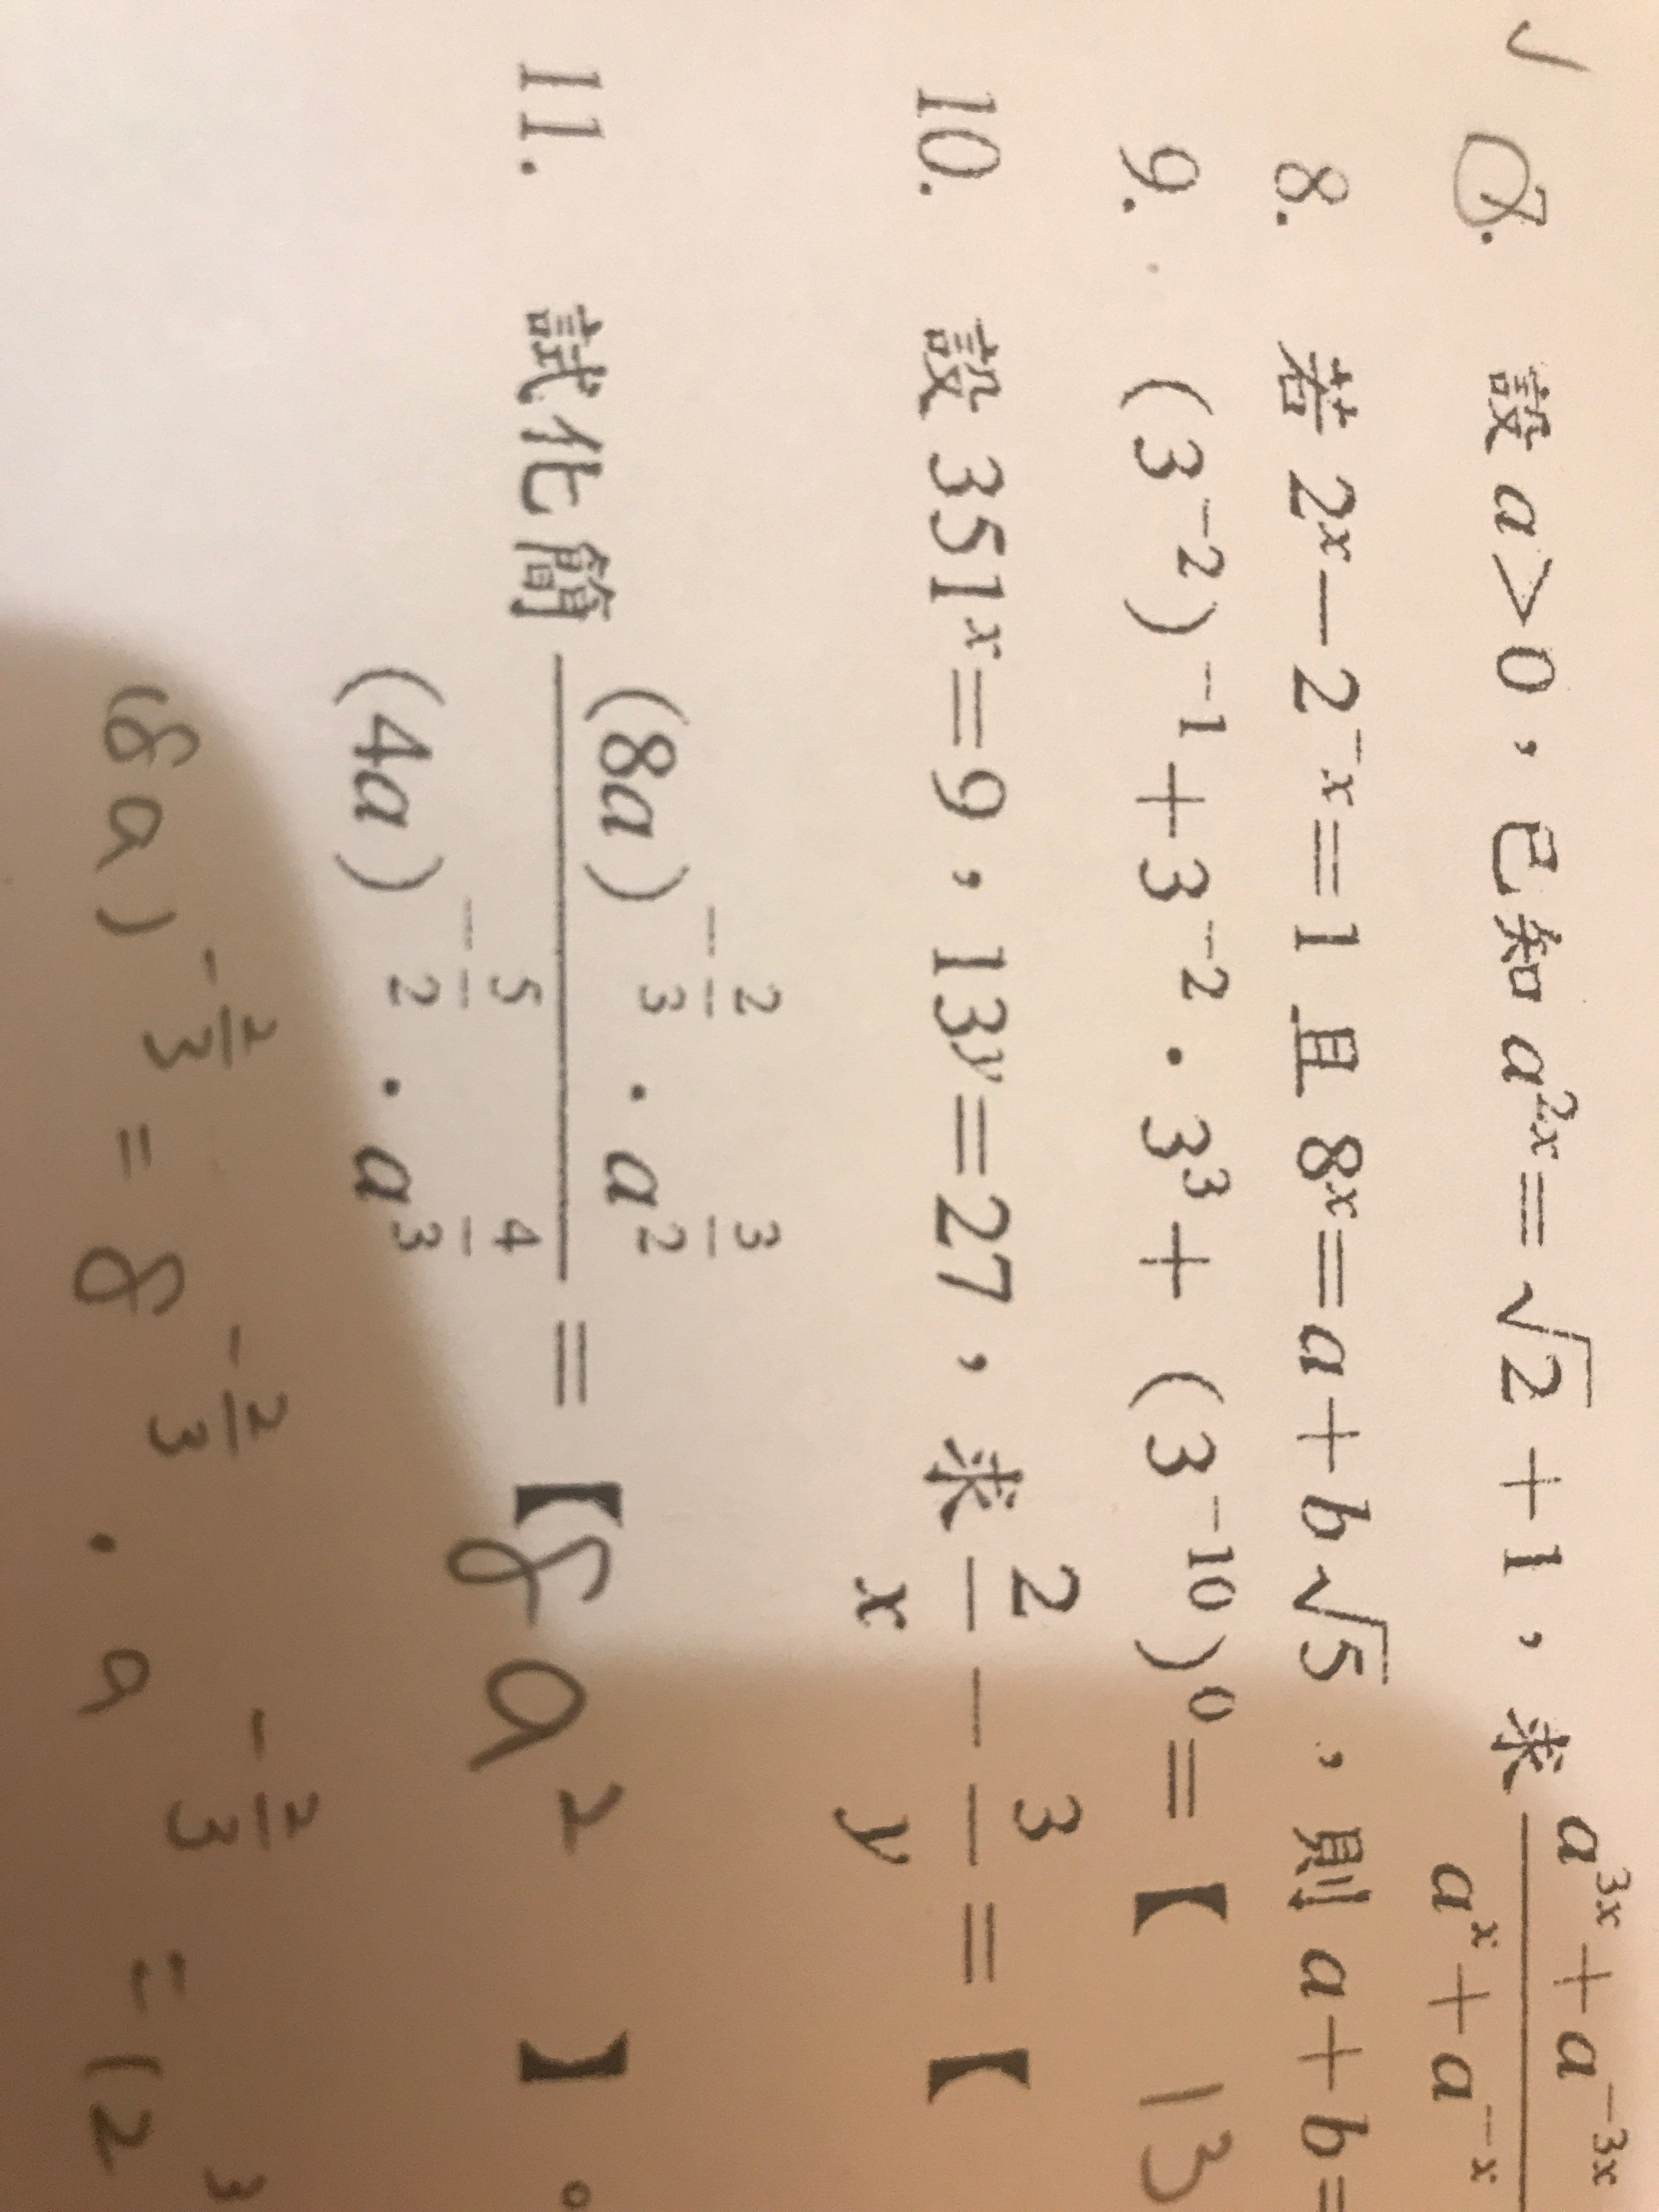 ✓ 7. 設 a>0，已知 a^{2x}=√2+1，求 \frac{a^{3x}+a^{-3x}}{a^x+a^{-x}}
8. 若 2^x－2^{-x}=1 且 8^x=a+b√5，則 a+b=
9. (3^{-2})^{-1}+3^{-2}·3^3+(3^{-10})^0=【 13
10. 設 351^x=9，13^y=27，求 \frac{2}{x}－\frac{3}{y}=【
11. 試化簡 \frac{(8a)^{-\frac{2}{3}}·a^{\frac{3}{2}}}{(4a)^{-\frac{5}{2}}·a^{\frac{4}{3}}}=【8a^2】。
(8a)^{-\frac{2}{3}}=8^{-\frac{2}{3}}·a^{-\frac{2}{3}}=(2^3